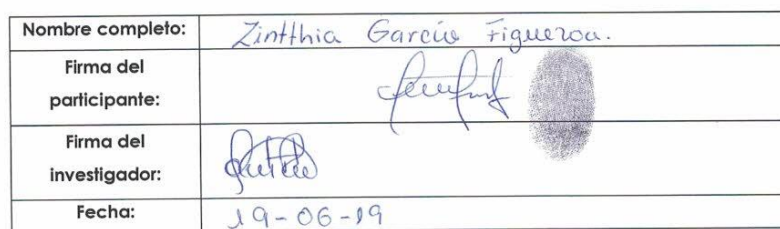 Nombre completo: Zintthia García Figueroa.
Firma del
participante:
Firma del
investigador:
Fecha: 19-06-19